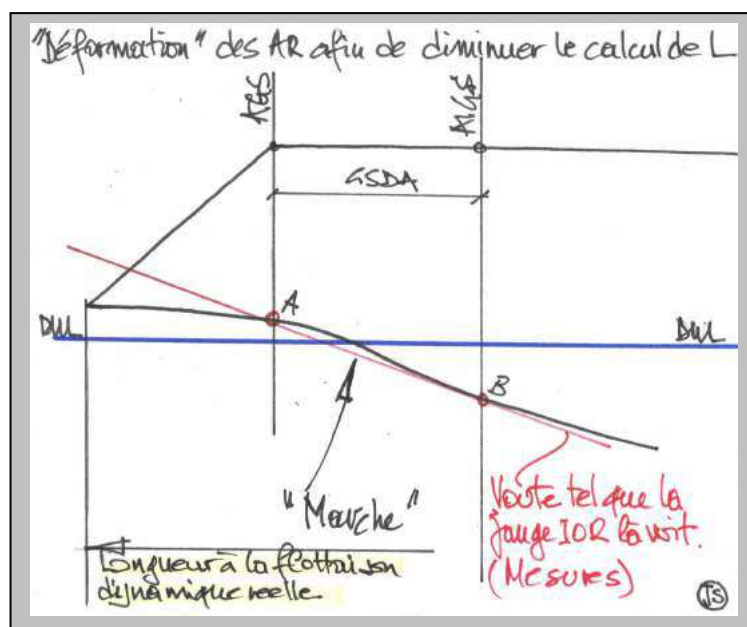 "Déformation" des AR afin de diminuer le calcul de L
AGS
AIGS
GSDA
A
DWL
DWL
B
"Manche"
Voûte tel que la
jauge IOR la voit.
(Mesures)
Longueur à la flottaison
dynamique reelle.
JS